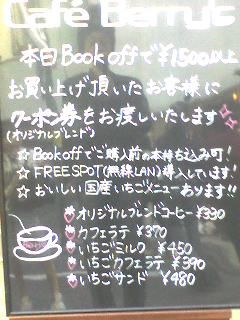 Café Berry's
本日Book offで¥1500以上
お買い上げ頂いたお客様に
クーポン券をお渡しいたします
(オリジナルブレンド)
☆Book offでご購入前の本持ち込み可!
☆FREE SPOT(無線LAN)導入しています!
☆おいしい国産いちごメニューあります!!
オリジナルブレンドコーヒー ¥330
カフェラテ ¥370
いちごミルク ¥450
いちごカフェラテ ¥390
いちごサンド ¥480